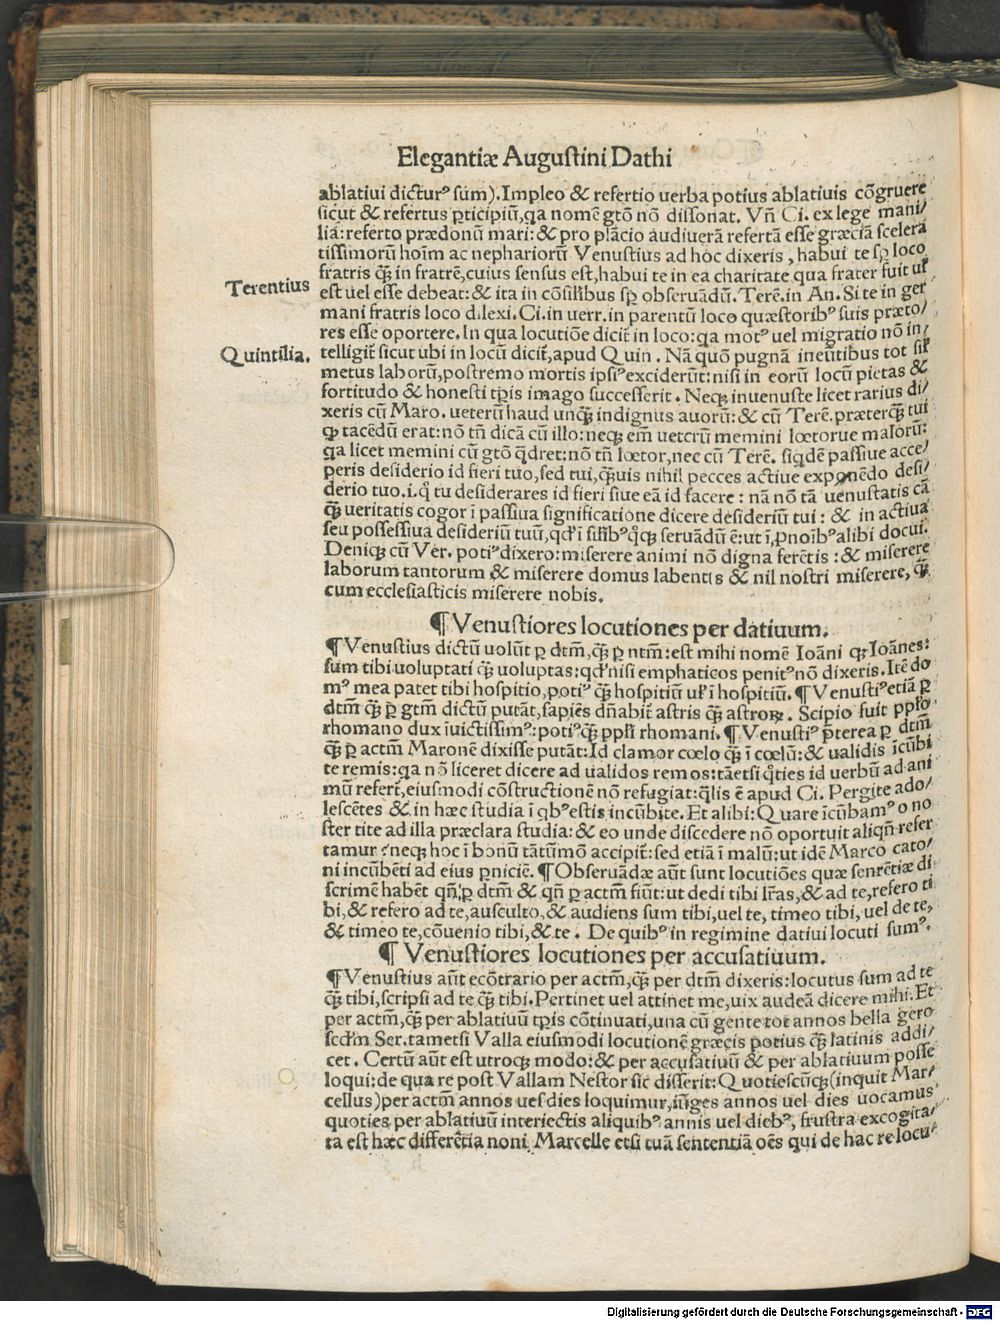 Elegantiæ Augustini Dathi
ablatiui dicturꝰ sum). Impleo & refertio uerba potius ablatiuis cōgruere
sicut & refertus ꝑticipiū, qa nomē gtō nō dissonat. Vñ Ci. ex lege mani/
liā: referto prædonū mari: & pro plācio audiuerā refertā esse græciā scelera
tissimorū hoīm ac nephariorū Venustius ad hoc dixeris, habui te loco
fratris ꝙ̄ in fratrē, cuius sensus est, habui te in ea charitate qua frater fuit
Terentius
est uel esse debeat: & ita in cōsilibus obseruādū. Terē. in An. Si te in ger
mani fratris loco dilexi. Ci. in uerr. in parentū loco quæstoribꝰ suis præto/
res esse oportere. In qua locutiōe dicit̄ in loco: qa motꝰ uel migratio nō in/
Quintilia.
telligit̄ sicut ubi in locū dicit̄, apud Quin. Nā quō pugnā ineūtibus tot
metus laborū, postremo mortis ipsiꝰ exciderūt: nisi in eorū locū pietas &
fortitudo & honesti tꝑis imago successerit. Neqꝫ inuenuste licet rarius di/
xeris cū Maro. ueterū haud unꝙ̄ indignus auorū: & cū Terē. præterꝙ̄ tui
ꝙ tacēdū erat: nō tñ dicā cū illo: neqꝫ em̄ ueterū memini lœtorue malorū:
qa licet memini cū gtō q̄dret: nō tñ lœtor, nec cū Terē. siqdē passiue acce/
peris desiderio id fieri tuo, sed tui, ꝙ̄uis nihil pecces actiue exponēdo desi/
derio tuo. i. q̇ tu desiderares id fieri siue eā id facere: nā nō tā uenustatis cā
ꝙ̄ ueritatis cogor ī passiua significatione dicere desideriū tui: & in actiua
seu possessiua desideriū tuū, seruādū ē: ut ī ꝓnoībꝰ alibi docui.
Deniqꝫ cū Ver. potiꝰ dixero: miserere animi nō digna ferētis: & miserere
laborum tantorum & miserere domus labentis & nil nostri miserere, ꝙ̄
cum ecclesiasticis miserere nobis.
¶ Venustiores locutiones per datiuum.
¶ Venustius dictū uolūt ꝑ dtm̄, ꝙ̄ ꝑ ntm̄: est mihi nomē Ioāni qꝫ Ioānes:
sum tibi uoluptati ꝙ̄ uoluptas: qd' nisi emphaticos penitꝰ nō dixeris. Itē do
mꝰ mea patet tibi hospitio, potiꝰ ꝙ̄ hospitiū ul' ī hospitiū. ¶ Venustiꝰ etiā ꝑ
dtm̄ ꝙ̄ ꝑ gtm̄ dictū putāt, sapiēs dñabit̄ astris ꝙ̄ astroꝝ. Scipio fuit pplo
rhomano dux īuictissimꝰ: potiꝰ ꝙ̄ ppli rhomani. ¶ Venustiꝰ p̄terea ꝑ dtm̄
ꝙ̄ ꝑ actm̄ Maronē dixisse putāt: Id clamor cœlo ꝙ̄ ī cœlū: & ualidis īcūbi
te remis: qa nō liceret dicere ad ualidos remos: tāetsi q̇ties id uerbū ad ani
mū refert̄, eiusmodi cōstructionē nō refugiat: q̄lis ē apud Ci. Pergite ado/
lescētes & in hæc studia ī qbꝰ estis incūbite. Et alibi: Quare īcūbamꝰ o no
ster tite ad illa præclara studia: & eo unde discedere nō oportuit aliqñ refer
tamur: neqꝫ hoc ī bonū tātūmō accipit̄: sed etiā ī malū: ut idē Marco cato/
ni incūbēti ad eius ꝑniciē. ¶ Obseruādæ aūt sunt locutiōes quæ sentētiæ di
scrimē habēt qñꝗ ꝑ dtm̄ & qñ ꝑ actm̄ fiūt: ut dedi tibi l'ras, & ad te, refero ti
bi, & refero ad te, ausculto, & audiens sum tibi, uel te, timeo tibi, uel de te,
& timeo te, cōuenio tibi, & te. De quibꝰ in regimine datiui locuti sumꝰ.
¶ Venustiores locutiones per accusatiuum.
¶ Venustius aūt ecōtrario per actm̄, ꝙ̄ per dtm̄ dixeris: locutus sum ad te
ꝙ̄ tibi, scripsi ad te ꝙ̄ tibi. Pertinet uel attinet me, uix audeā dicere mihi. Et
per actm̄, ꝙ̄ per ablatiuū tꝑis cōtinuati, una cū gente tot annos bella gero
scd'm Ser. tametsi Valla eiusmodi locutionē græcis potius ꝙ̄ latinis addi/
cet. Certū aūt est utroqꝫ modo: & per accusatiuū & per ablatiuum posse
loqui: de qua re post Vallam Nestor sic disserit: Quotiescūqꝫ (inquit Mar/
cellus) per actm̄ annos uel dies loquimur, iūges annos uel dies uocamus
quoties per ablatiuū interiectis aliquibꝰ annis uel diebꝰ, frustra excogita/
ta est hæc differētia noni Marcelle etsi tuā sententiā oēs qui de hac re locu/
Digitalisierung gefördert durch die Deutsche Forschungsgemeinschaft - DFG